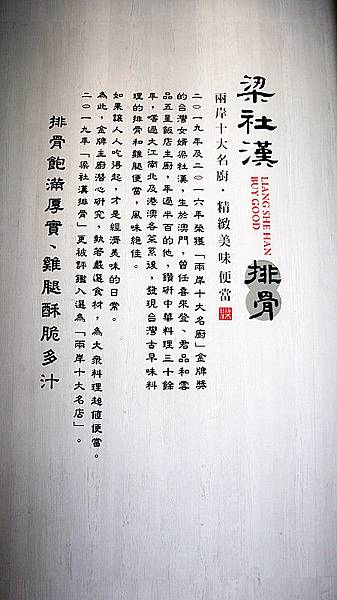 梁社漢
排骨
LIANG SHE HAN
BUY GOOD
兩岸十大名廚・精緻美味便當
二〇一九年及二〇一六年榮獲「兩岸十大名廚」金牌獎
的台灣女婿梁社漢,生於澳門,曾任喜來登、君品和雲
品五星飯店主廚,年過半百的他,鑽研中華料理三十餘
年,嚐過大江南北及港澳各菜系後,發現台灣古早味料
理的排骨和雞腿便當,風味絕佳。
如果讓人人吃得起,才是經濟美味的日常。
為此,金牌主廚潛心研究,執著嚴選食材,為大眾料理超值便當。
二〇一九年「梁社漢排骨」更被評鑑入選為「兩岸十大名店」。
排骨飽滿厚實、雞腿酥脆多汁